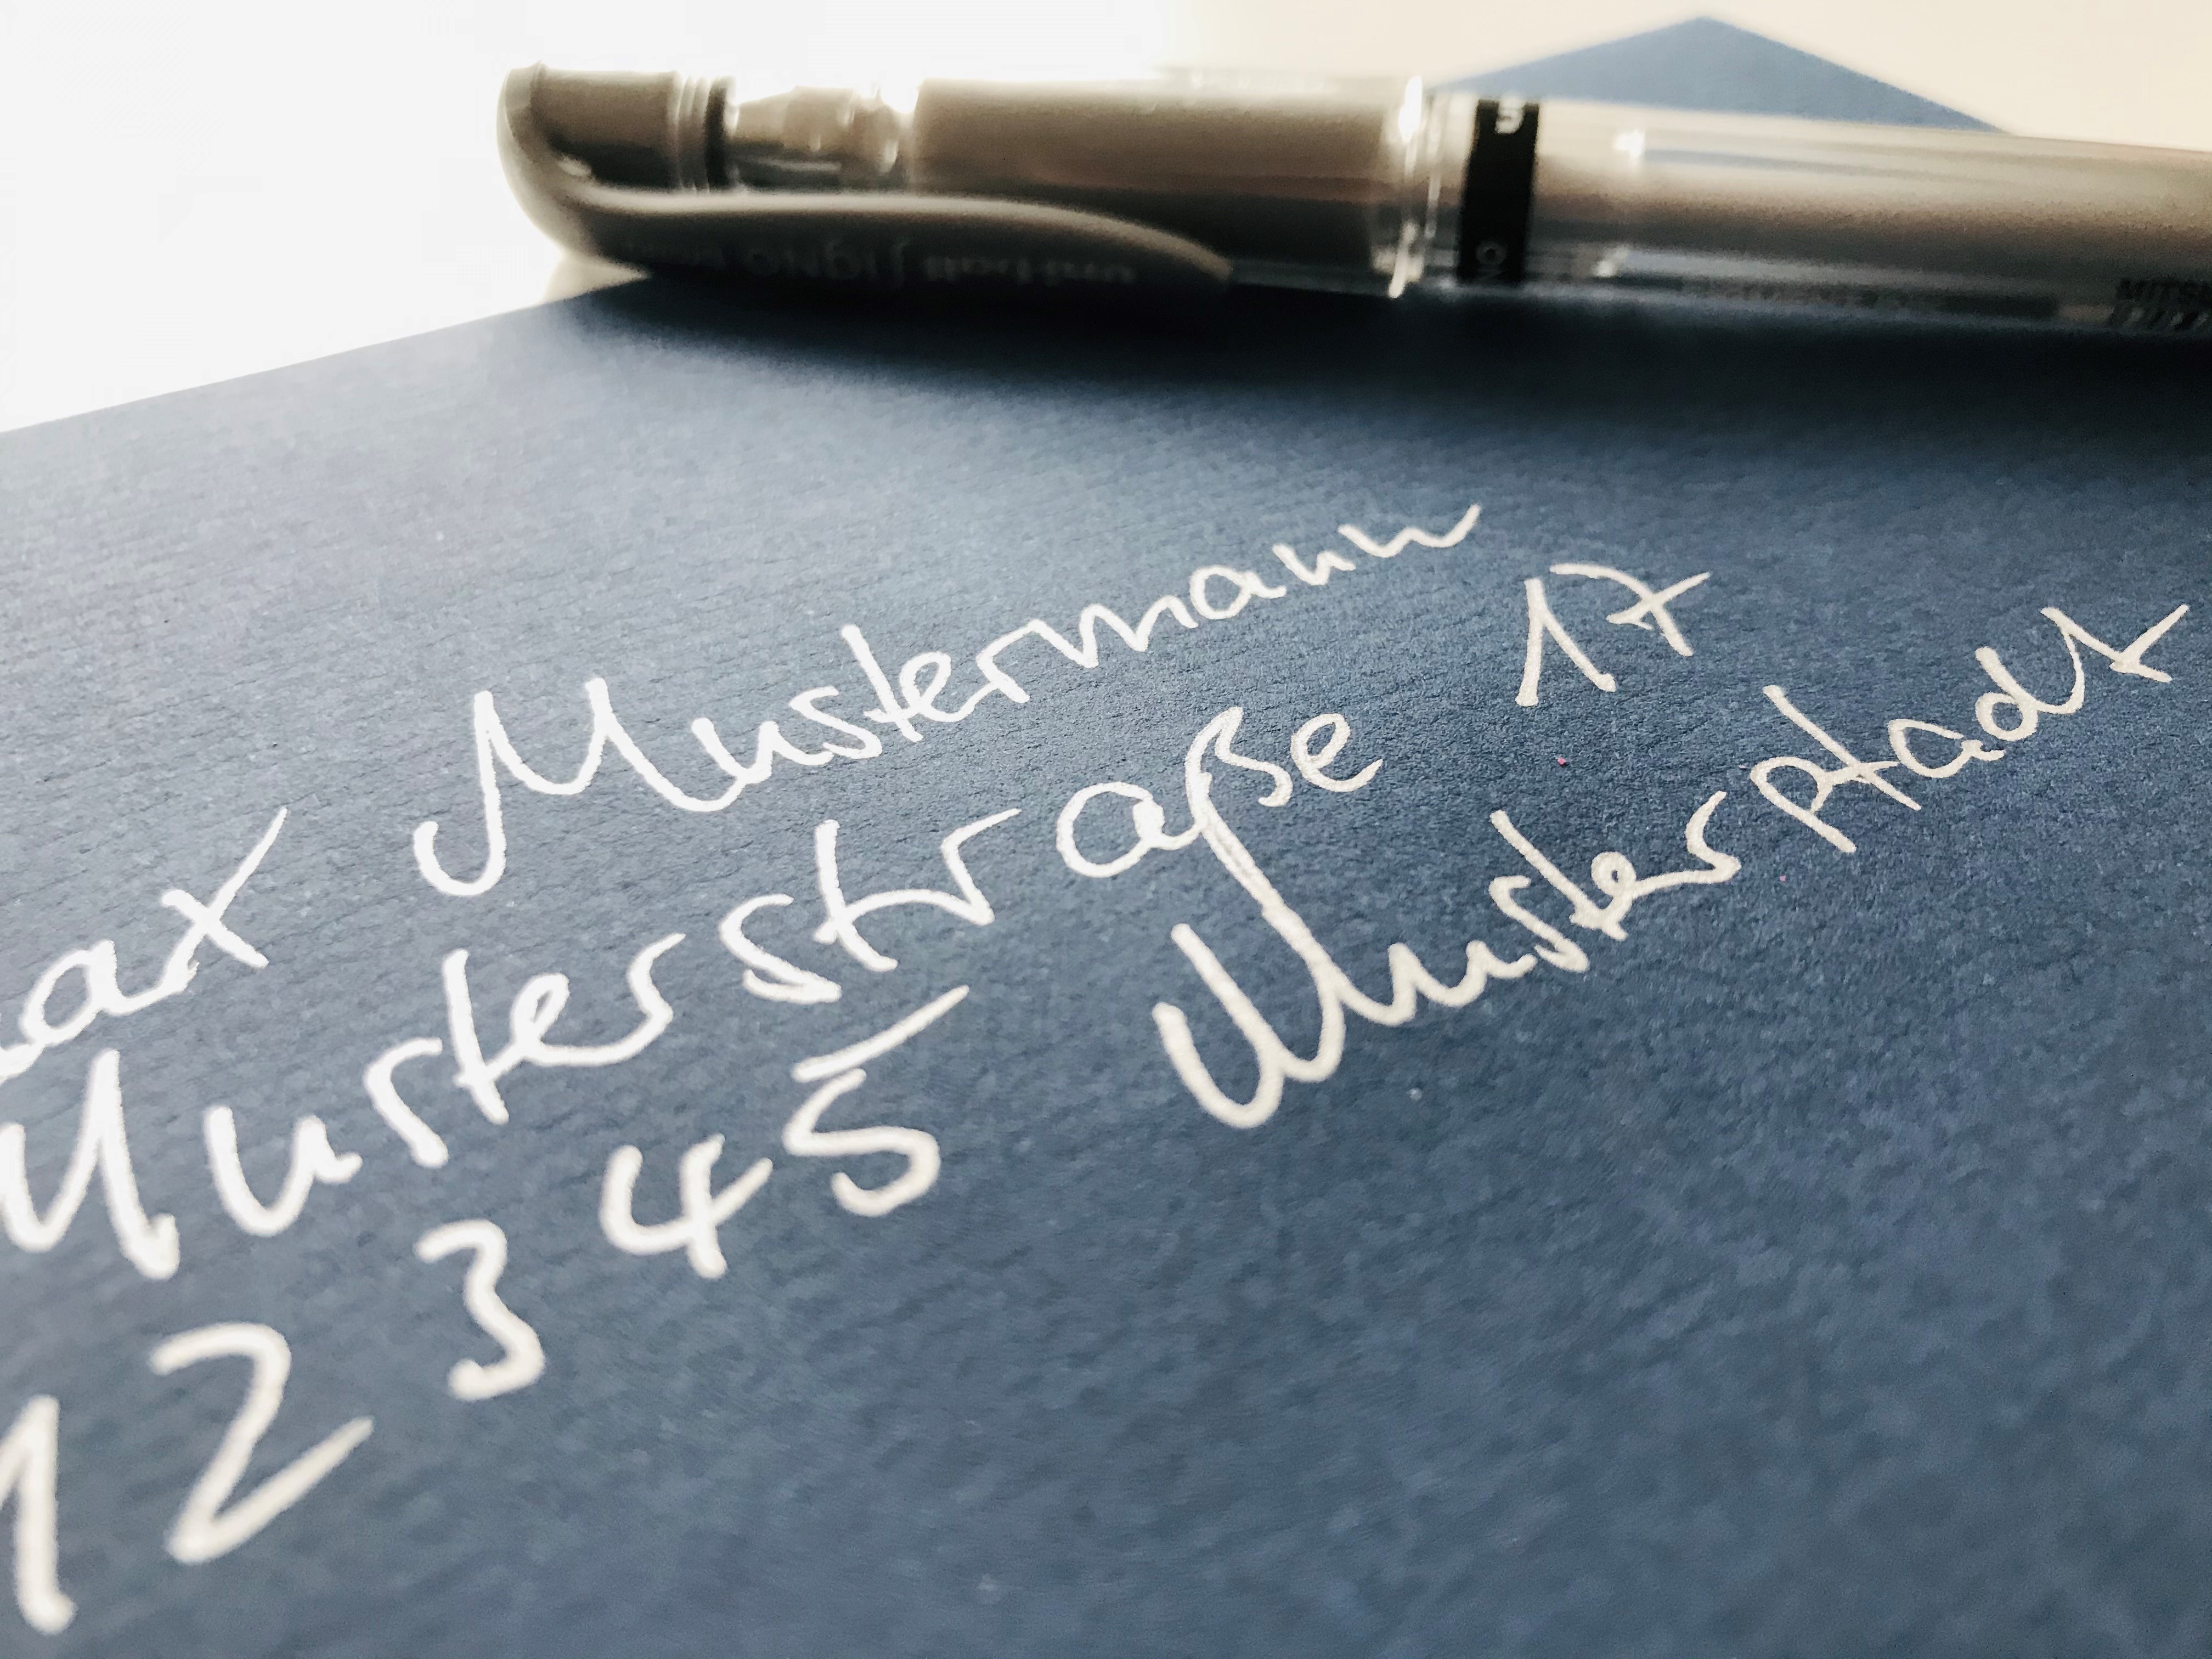 uni-ball SIGNO
ax Mustermann
Musterstraße 17
12345 Musterstadt